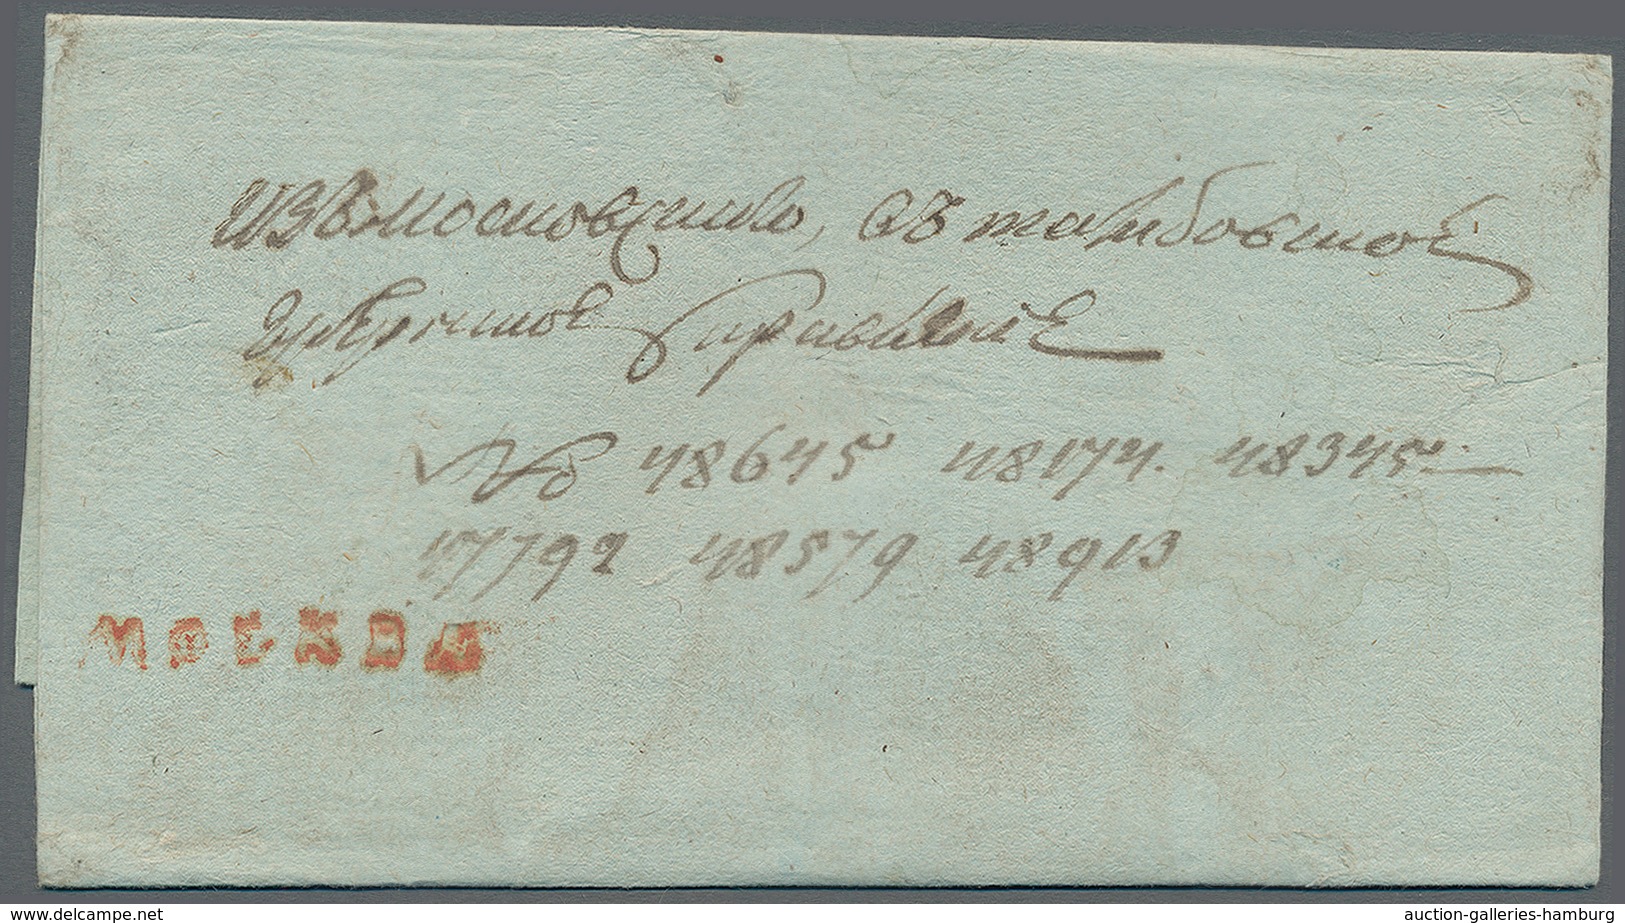 изъ московскаго, въ тамбовское
губернское правление
№ 48645 48174. 48345
47792 48579 48913
МОСКВА
delcampe.net
auction-galleries-hamburg